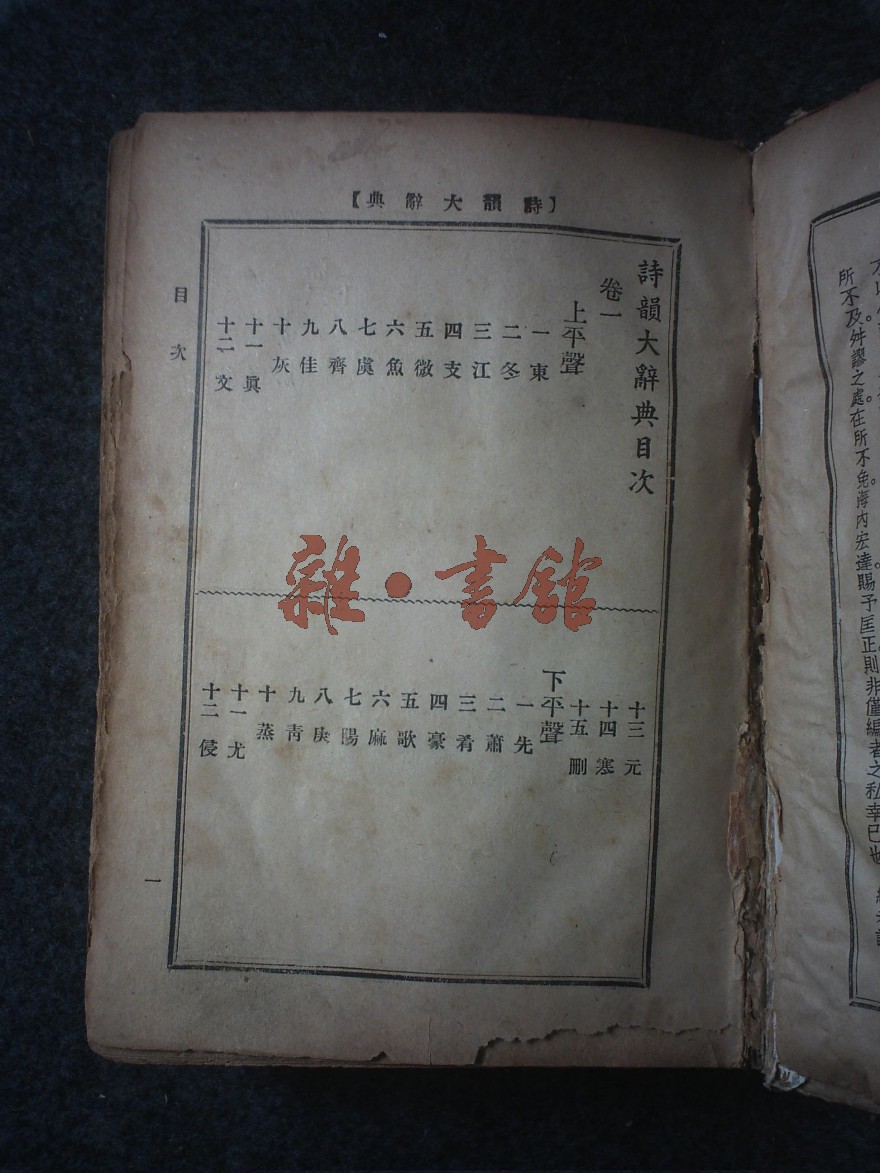 所不及。舛謬之處。在所不免。海內宏達。賜予匡正。則非僅編者之私幸已也
【詩韻大辭典】
詩韻大辭典目次
卷一
上平聲
一 東
二 冬
三 江
四 支
五 微
六 魚
七 虞
八 齊
九 佳
十 灰
十一 眞
十二 文
十三 元
十四 寒
十五 刪
下平聲
一 先
二 蕭
三 肴
四 豪
五 歌
六 麻
七 陽
八 庚
九 靑
十 蒸
十一 尤
十二 侵
目次
一
雜·書館